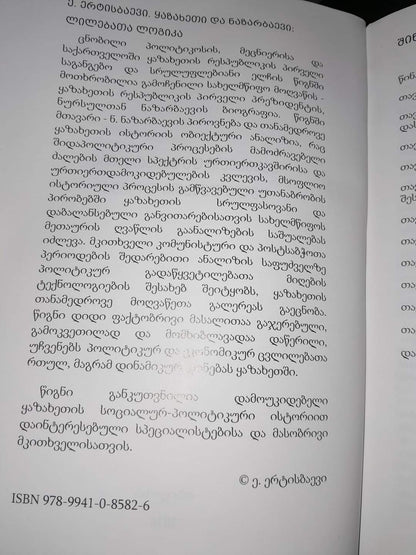 ე. ერტისბაევი. ყაზახეთი და ნაზარბაევი:
ცვლილებათა ლოგიკა
ცნობილი პოლიტიკოსის, მეცნიერისა და
საქართველოში ყაზახეთის რესპუბლიკის პირველი
საგანგებო და სრულუფლებიანი ელჩის წიგნში
მოთხრობილია გამოჩენილი სახელმწიფო მოღვაწის -
ყაზახეთის რესპუბლიკის პირველი პრეზიდენტის,
ნურსულთან ნაზარბაევის ბიოგრაფია. წიგნში
მთავარი - ნ. ნაზარბაევის პიროვნება და თანამედროვე
ყაზახეთის ისტორიის ობიექტური ანალიზია, რაც
შიდაპოლიტიკური პროცესების მამოძრავებელი
ძალების მთელი სპექტრის ურთიერთკავშირისა და
ურთიერთდამოკიდებულების კვლევის, მსოფლიო
ისტორიული პროცესის გამწვავებული უთანაბრობის
პირობებში ყაზახეთის სრულფასოვანი და
დაბალანსებული განვითარებისათვის სახელმწიფოს
მეთაურის ღვაწლის გაანალიზების საშუალებას
იძლევა. მკითხველი კომუნისტური და პოსტსაბჭოთა
პერიოდების შედარებითი ანალიზის საფუძველზე
პოლიტიკურ გადაწყვეტილებათა მიღების
ტექნოლოგიების შესახებ შეიტყობს, ყაზახეთის
თანამედროვე მოღვაწეთა გალერეას გაეცნობა.
წიგნი დიდი ფაქტობრივი მასალითაა გაჯერებული,
გამოკვეთილად და მომხიბლავადაა დაწერილი,
უჩვენებს პოლიტიკურ და ეკონომიკურ ცვლილებათა
რთულ, მაგრამ დინამიკურ ყაზახეთში.
წიგნი განკუთვნილია დამოუკიდებელი
ყაზახეთის სოციალურ-პოლიტიკური ისტორიით
დაინტერესებული სპეციალისტებისა და მასობრივი
მკითხველისათვის.
© ე. ერტისბაევი
ISBN 978-9941-0-8582-6
შინ
წინ
თავ
თავ